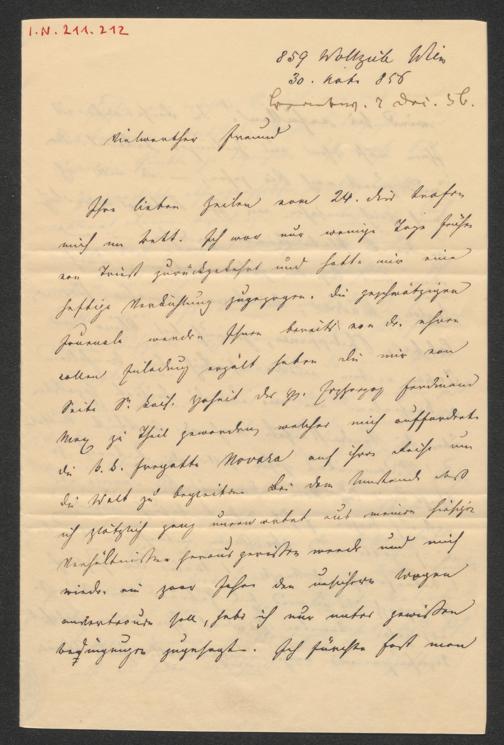 I.N. 211.212
859 Wollzeile Wien
30. Nobr 856
2 Dec. 56.
Vielwerther Freund
Ihre lieben Zeilen vom 24. dies trafen
mich im Bett. Ich war nur wenige Tage früher
von Triest zurückgekehrt und hatte mir eine
heftige Verkühlung zugezogen. Die geschwätzigen
Journale werden Ihnen bereits von der ehren
vollen Einladung erzält haben die mir von
Seite Sr kais. Hoheit des H. Erzherzog Ferdinand
Max zu Theil geworden, welcher mich aufforderte
die k.k. Fregatte Novara auf ihrer Reise um
die Welt zu begleiten. Bei dem Umstande daß
ich plötzlich ganz unerwartet aus meinen hiesigen
Verhältnissen herausgerissen werde und mich
wieder ein paar Jahre den unsichern Wogen
anvertrauen soll, habe ich nur unter gewissen
Bedingungen zugesagt. Ich fürchte fast man